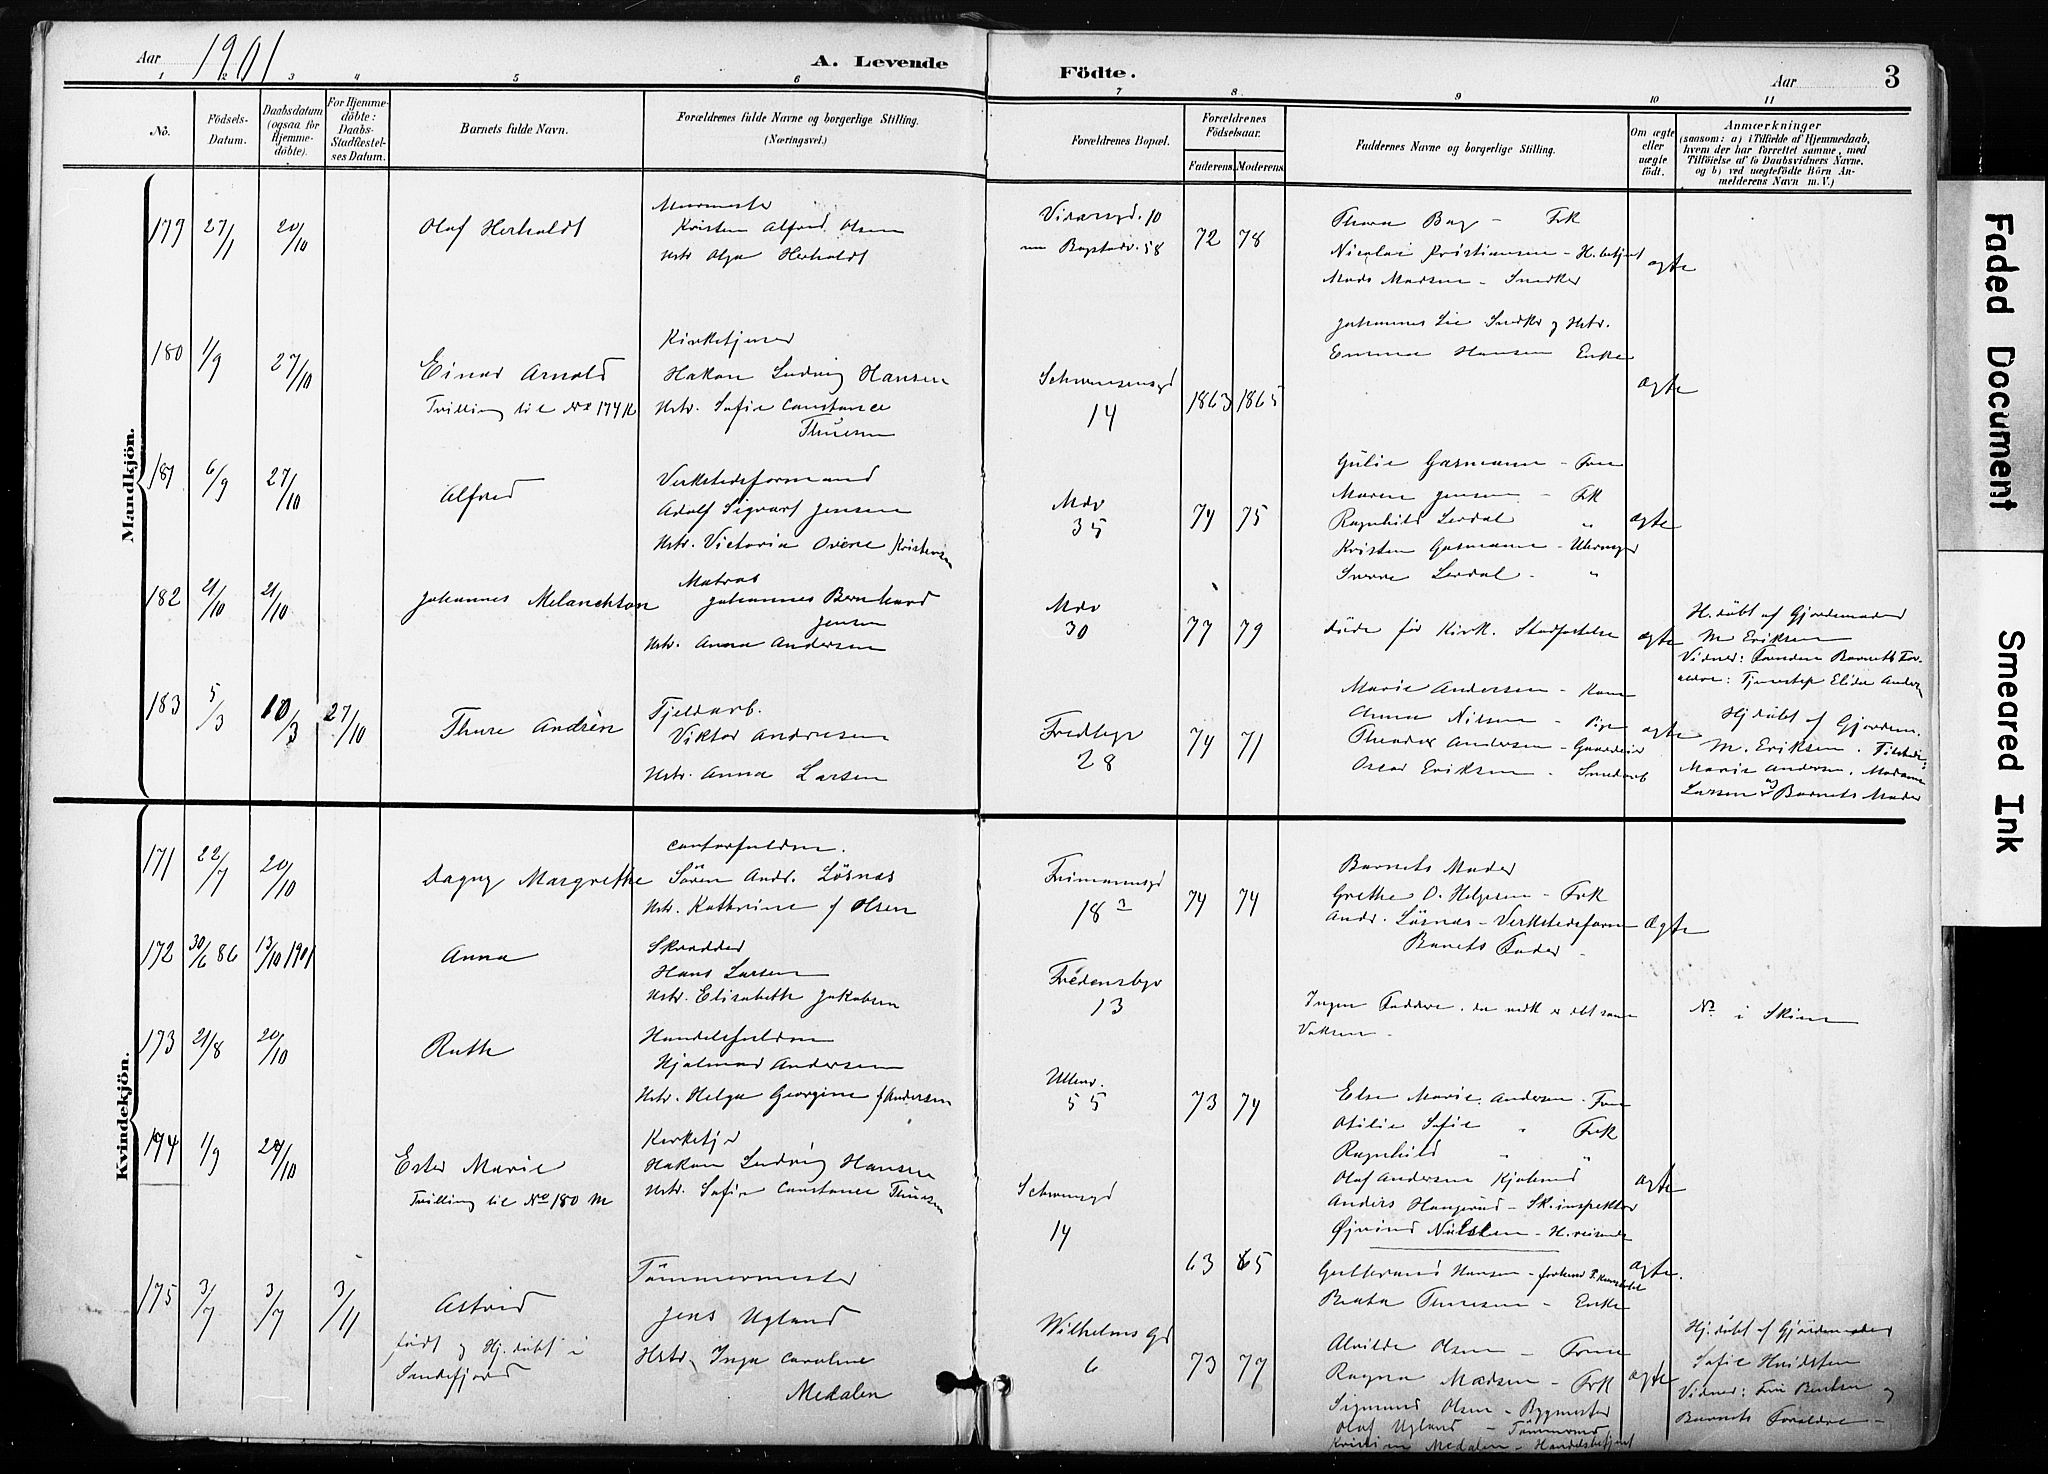 Aar 1901
A. Levende
Födte.
Aar
3
1 2 3 4 5 6 7 8 9 10 11
No.
Födsels-
Datum.
Daabsdatum
(ogsaa for
Hjemme-
döbte).
For Hjemme-
döbte:
Daabs-
Stadfæstel-
ses Datum.
Barnets fulde Navn.
Forældrenes fulde Navne og borgerlige Stilling.
(Næringsvei.)
Forældrenes Bopæl.
Forældrenes
Födselsaar.
Faderens. Moderens.
Faddernes Navne og borgerlige Stilling.
Om ægte
eller
uægte
födt.
Anmærkninger
(saasom: a) i Tilfælde af Hjemmedaab,
hvem der har forrettet samme, med
Tilföielse af to Daabsvidners Navne.
og b) ved uægtefödte Börn An-
melderens Navn m. V.)
Mandkjön.
179 27/1 20/10
Olaf Herholdt
Murmester
Kristen Alfred Olsen
Hstr Olga Herholdt
10
Bogstadv. 58
72 78
Thora Bay - Frk
Nicolai Kristiansen - H.betjent
Mads Madsen - Snedker
ægte
180 1/9 27/10
Einar Arnold
Tvilling til No 174 K
Kirketjener
Hakon Ludvig Hansen
Hstr. Sofie Constance
Thuesen
Schwensensgd
14
1863 1865
Johannes Lie Snedker og Hstr.
Emma Hansen Enke
ægte
181 6/9 27/10
Alfred
Verkstedsformand
Adolf Sigvart Jensen
Hstr. Victoria Kristensen
Mdv
35
74 75
Gasmann - Frue
Maren Jensen - Frk
Ragnhild Lerdal "
Kristen Gasmann - Uhrmager
Lerdal - "
ægte
182 21/10 21/10
Johannes Melanchton
Matros
Johannes Bernhard
Jensen
Hstr. Anna Andersen
Mdv
30
77 79
døde før Kirk. Stadfæstelse
ægte
H.døbt af Gjordemoder
M Eriksen
Vidner: Barnets For-
ældre: Andersen
183 5/3 10/3 27/10
Thure Andrèn
Fjeldarb.
Viktor Andresen
Hstr. Anna Larsen
Fredbgv
28
74 71
Marie Andersen - Kone
Anna Nilsen - Pige
Theodor Andersen - Gaardeier
Oscar Eriksen - Smedarb
ægte
Hj.døbt af Gjordem.
M. Eriksen.
Marie Andersen. Madame
Larsen og Barnets Moder
Kvindekjön.
171 22/7 20/10
Dagny Margrethe
Contorfuldm.
Sören Andr. Lösnæs
Hstr. Kathrine f Olsen
Frimannsgd
18 3
74 74
Barnets Moder
Grethe O. Helgesen - Frk
Andr. Lösnæs - Verkstedsform
Barnets Fader -
Ægte
172 30/6 86 13/10 1901
Anna
Skrædder
Hans Larsen
Hstr. Elisabeth Jakobsen
Fredensbgv
13
Ingen Faddere, da vedk er døbt som
Voksen -
No i Skien
173 21/8 20/10
Ruth
Handelsfuldm
Hjalmar Andersen
Hstr. Helga Georgine f Andersen
Ullevv.
55
73 74
Else Marie Andersen - Frue
Otilie Sofie " Frk
Ragnhild " "
Olaf Andersen Kjøbmd
Anders Haugerud - Sk.inspektør
Øjvind Nielsen - H.reisende
ægte
174 1/9 27/10
Ester Marie
Tvilling til No 180 M
Kirketj
Hakon Ludvig Hansen
Hstr. Sofie Constance Thuesen
Schwensgd
14
63 65
Hansen -
Beata Thuesen - Enke
ægte.
175 3/7 3/7 3/11
Astrid
født og Hj.døbt i
Sandefjord
Tömmermester
Jens Ugland
Hstr. Inga Caroline
Medalen
Wilhelms Gd
6
73 77
Alvilde Olsen - Frue
Ragna Madsen - Frk
Sigmund Olsen - Bygmester
Olaf Ugland - Tömmermd
Kristine Medalen - Handelsbetjent
ægte
Hj.døbt af Gjördemoder
Sofie Hvidsten
Vidner: Fru Bentsen og
Barnets Foreldre -
Faded Document
Smeared Ink